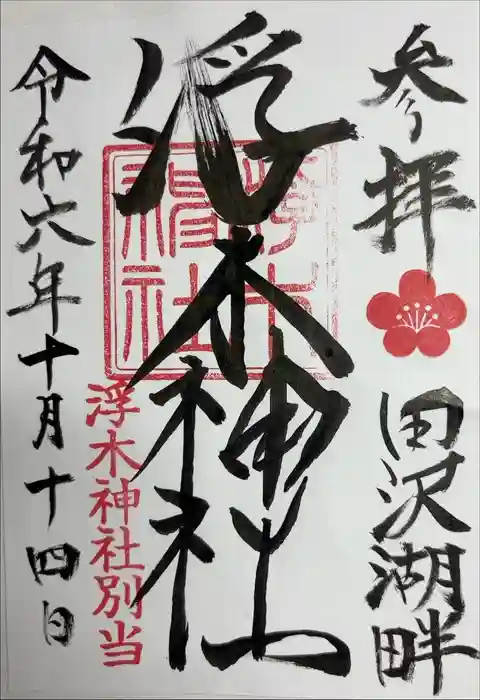 参拝
田沢湖畔
浮木神社
浮木神社別当
令和六年十月十四日